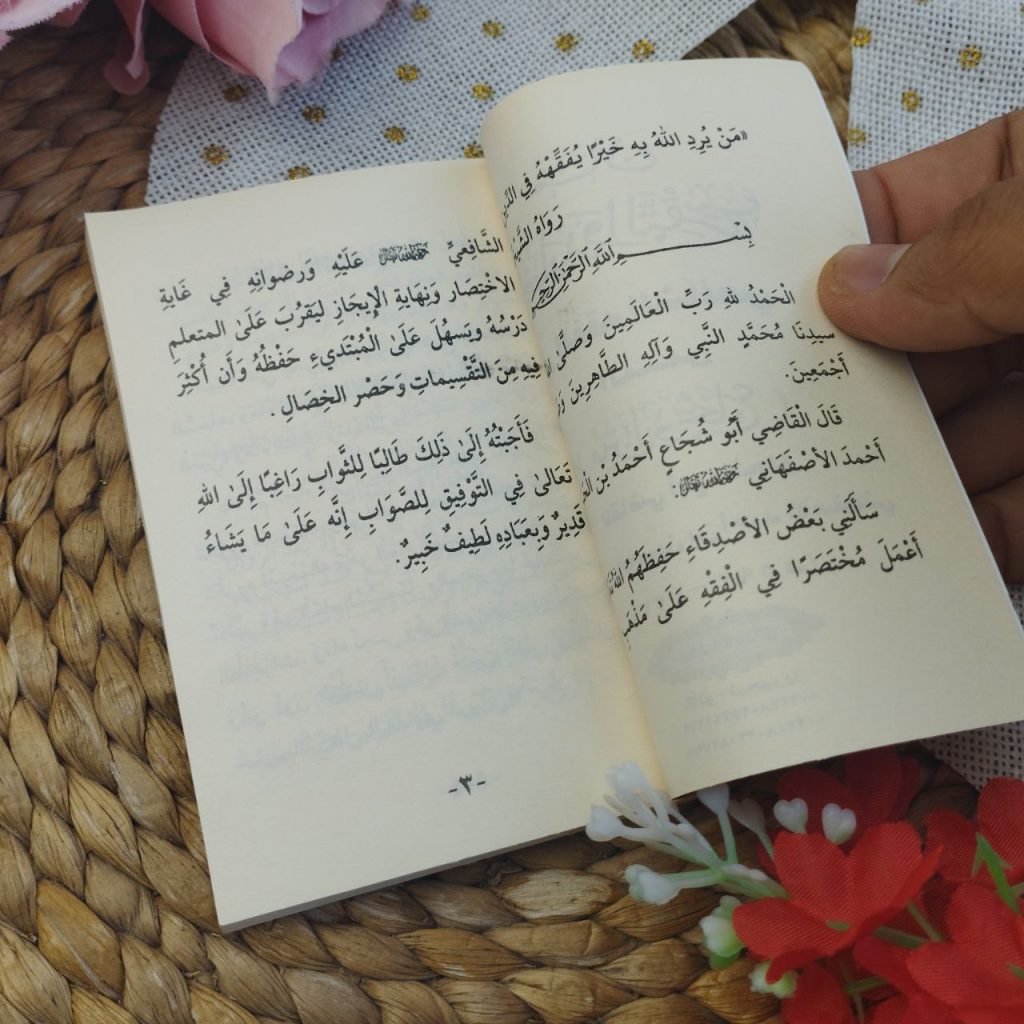 «مَنْ يُرِدِ اللهُ بِهِ خَيْرًا يُفَقِّهْهُ فِي
رَوَاهُ
بِسْــــــمِ اللَّهِ الرَّحْمَنِ الرَّحِيمِ
الْحَمْدُ للهِ رَبِّ الْعَالَمِينَ وَصَلَّى
سيدِنَا مُحَمَّدٍ النَّبِي وَآلِهِ الطَّاهِرِينَ
أَجْمَعِينَ.
قَالَ الْقَاضِي أَبُو شُجَاعٍ أَحْمَدُ بْنُ
أَحْمدَ الأصْفَهَانِي رَحِمَهُ اللهُ:
سَأَلَنِي بَعْضُ الأصْدِقَاءِ حَفِظَهُمُ اللهُ
أَعْمَلَ مُخْتَصَرًا فِي الْفِقْهِ عَلَىٰ
الشَّافِعِيِّ عَلَيْهِ وَرضوانِهِ فِي غَايَةِ
الاخْتِصَارِ وَنِهَايَةِ الإِيجَازِ لِيَقْرُبَ عَلَىٰ المتعلمِ
دَرْسُهُ ويَسهُلَ عَلَىٰ الْمُبْتَدِيءِ حَفْظُهُ وَأَن أُكْثِرَ
فِيهِ مِنَ التَّقْسِيماتِ وَحَصْر الخِصَالِ .
فَأَجَبْتُهُ إِلَىٰ ذَلِكَ طَالِبًا لِلثَّوابِ رَاغِبًا إِلَىٰ اللهِ
تَعَالىٰ فِي التَّوْفِيقِ لِلصَّوَابِ إِنَّه عَلَىٰ مَا يَشَاءُ
قَدِيرٌ وَبِعبَادِهِ لَطِيفٌ خَبِيرٌ.
-٣-